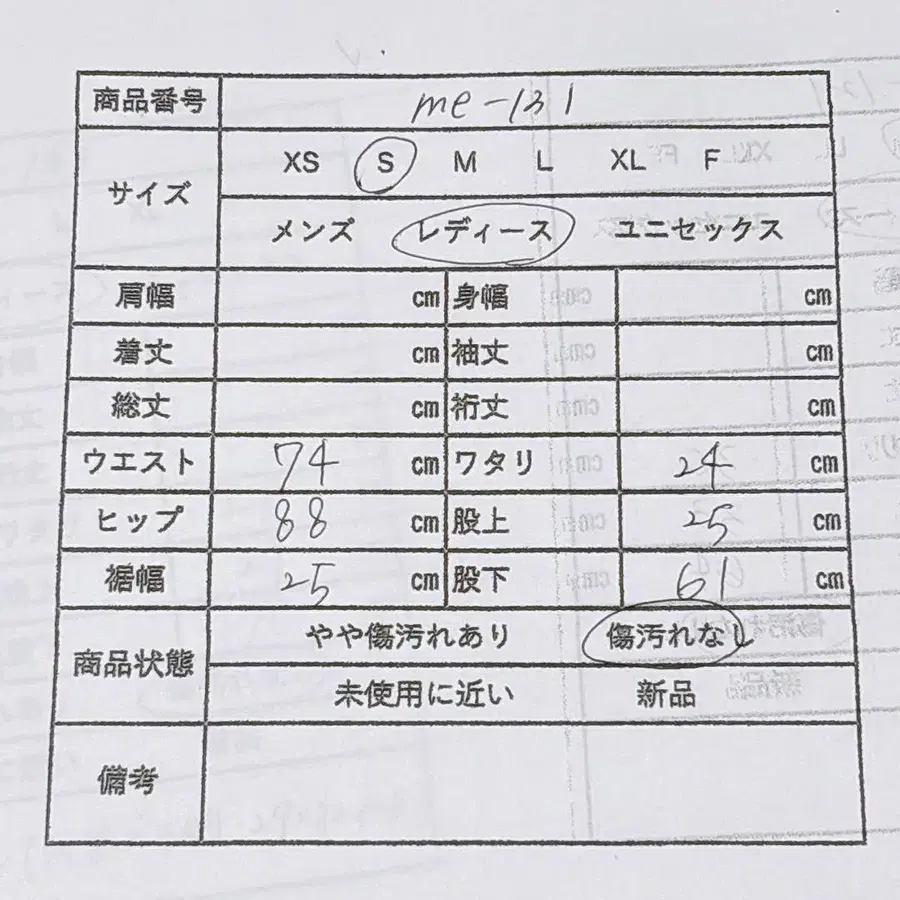 商品番号 me-131
サイズ XS S M L XL F
メンズ レディース ユニセックス
肩幅 cm 身幅 cm
着丈 cm 袖丈 cm
総丈 cm 裄丈 cm
ウエスト 74 cm ワタリ 24 cm
ヒップ 88 cm 股上 25 cm
裾幅 25 cm 股下 61 cm
商品状態 やや傷汚れあり 傷汚れなし
未使用に近い 新品
備考